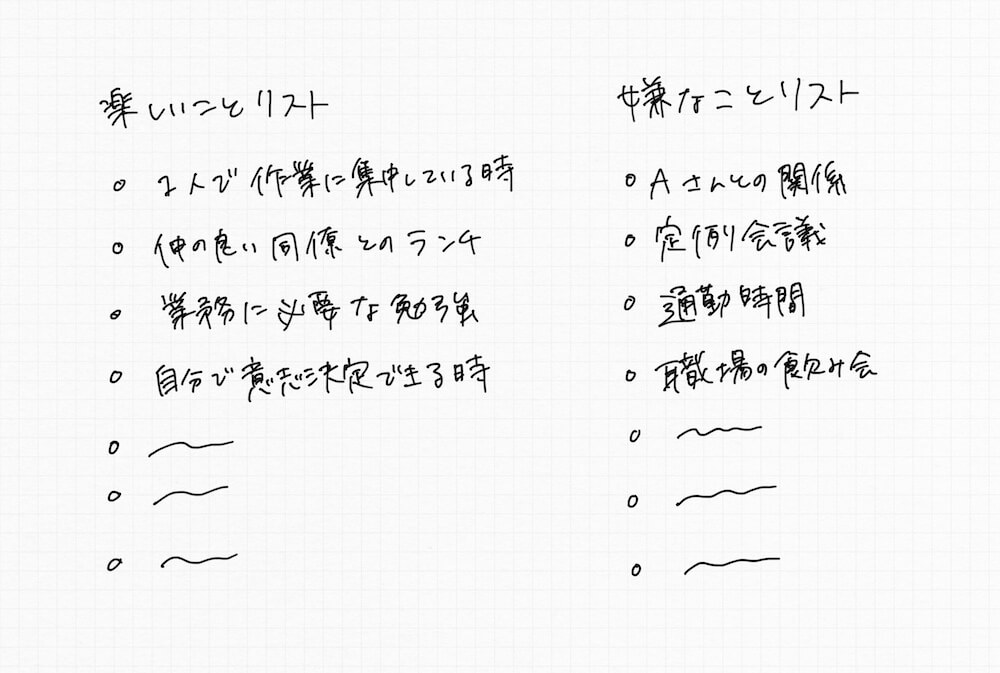 楽しいことリスト
1人で作業に集中している時
仲の良い同僚とのランチ
業務に必要な勉強
自分で意志決定できる時
嫌なことリスト
Aさんとの関係
定例会議
通勤時間
職場の飲み会